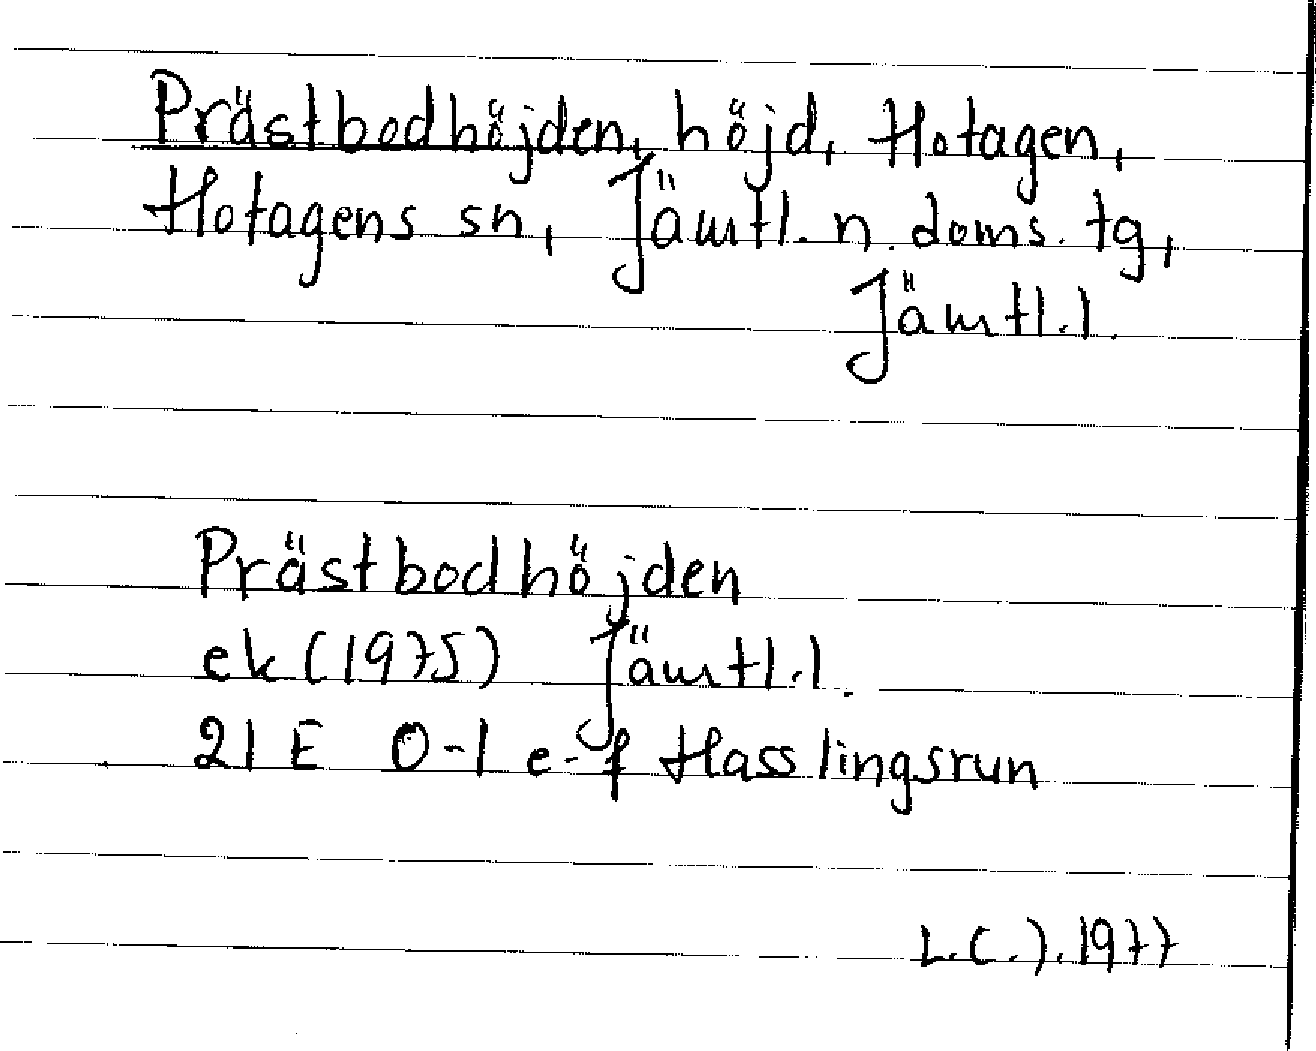 Prästbodhöjden, höjd, Hotagen,
Hotagens sn, Jämtl. n. doms. tg,
Jämtl. l.
Prästbodhöjden
ek (1975) Jämtl. l.
21 E 0-1 e-f Hasslingsrun
1977